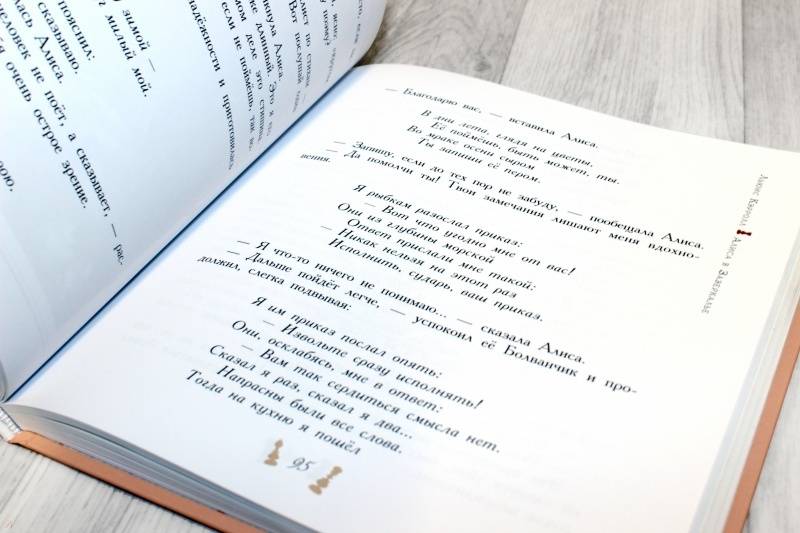 зимой —
милый мой.
пояснил:
сказываю.
лась Алиса.
еловек не поёт, а сказывает, — рас-
очень острое зрение.
вою.
нула Алиса.
лист по стихам.
Вот послушай
же длинный. Это я
деле это
если не поймёшь, так
надёжности и приготовилась
— Благодарю вас, — вставила Алиса.
В дни лета, глядя на цветы,
Её поймёшь, быть может, ты.
Во мраке осени сыром
Ты запиши её пером.
— Запишу, если до тех пор не забуду, — пообещала Алиса.
— Да помолчи ты! Твои замечания лишают меня вдохно-
вения.
Я рыбкам разослал приказ:
— Вот что угодно мне от вас!
Они из глубины морской
Ответ прислали мне такой:
— Никак нельзя на этот раз
Исполнить, сударь, ваш приказ.
— Я что-то ничего не понимаю... — сказала Алиса.
— Дальше пойдёт легче, — успокоил её Болванчик и про-
должил, слегка подвывая:
Я им приказ послал опять:
— Извольте сразу исполнять!
Они, осклабясь, мне в ответ:
— Вам так сердиться смысла нет.
Сказал я раз, сказал я два...
Напрасны были все слова.
Тогда на кухню я пошёл
95
Льюис Кэрролл Алиса в Зазеркалье